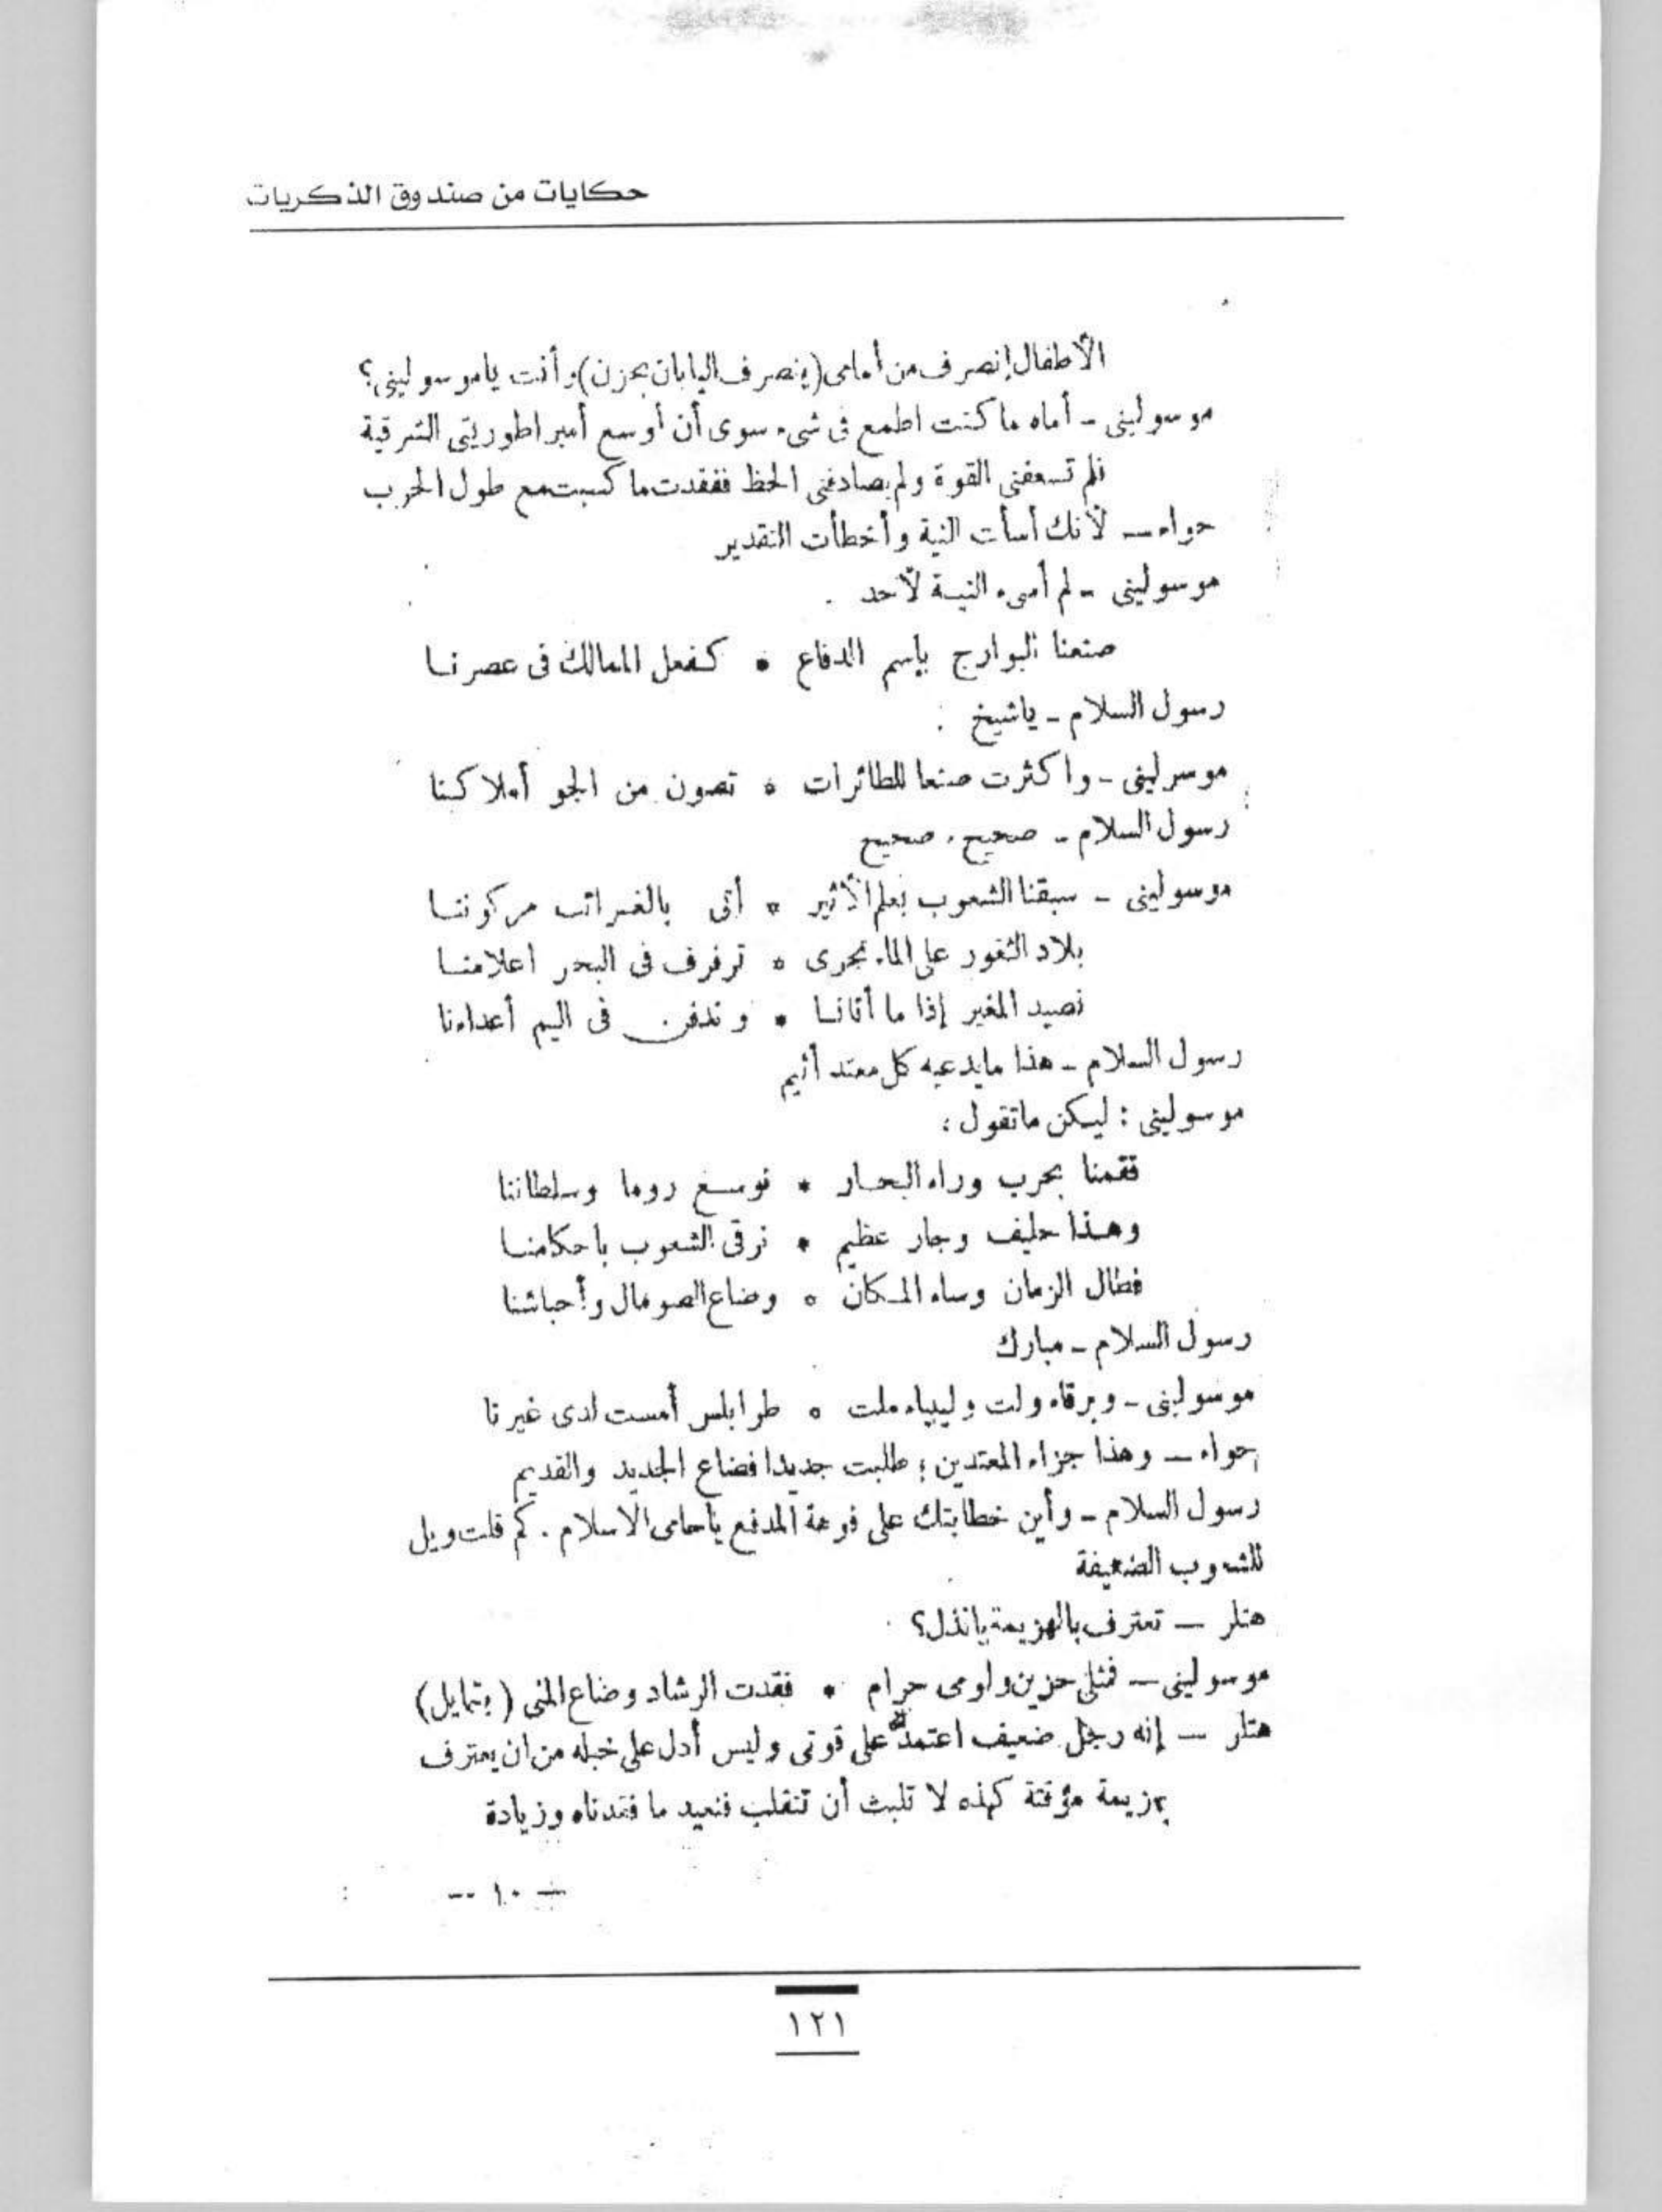 حكايات من صندوق الذكريات
الأطفال إنصرف من أمامى (ينصرف اليابان بحزن) وأنت ياموسولينى؟
موسولينى - أماه ما كنت اطمع فى شىء سوى أن أوسع أمبراطوريتى الشرقية
فلم تسعفنى القوة ولم يصادفنى الحظ ففقدت ما كسبت مع طول الحرب
حواء — لأنك أسأت النية وأخطأت التقدير
موسولينى - لم أسىء النية لأحد .
صنعنا البوارج باسم الدفاع * كفعل الممالك فى عصرنا
رسول السلام - ياشيخ .
موسرلينى - واكثرت صنعا للطائرات * تصون من الجو أملاكنا
رسول السلام - صحيح ، صحيح
موسولينى - سبقنا الشعوب بعلم الأثير * أتى بالغرائب مركوننا
بلاد الثغور على الماء تجرى * ترفرف فى البحر اعلامنا
نصيد المغير إذا ما أتانا * وندفن فى اليم أعداءنا
رسول السلام - هذا مايدعيه كل معتد أثيم
موسولينى : ليكن ماتقول ؛
فقمنا بحرب وراء البحار * نوسع روما وسلطاننا
وهذا حليف وجار عظيم * نرقى الشعوب باحكامنا
فطال الزمان وساء المكان * وضاع الصومال وأحباشنا
رسول السلام - مبارك
موسولينى - وبرقاه ولت وليبياء ملت * طرابلس أمست لدى غيرنا
حواء — وهذا جزاء المعتدين ؛ طلبت جديدا فضاع الجديد والقديم
رسول السلام - وأين خطابتك على فوهة المدفع ياحامى الاسلام . كم قلت ويل
للشعوب الضعيفة
هتلر — تعترف بالهزيمة يانذل؟
موسولينى — فمثلى حزين ولومى حرام * فقدت الرشاد وضاع المنى (يتمايل)
هتلر — إنه رجل ضعيف اعتمد على قوتى وليس أدل على خبله من ان يعترف
بهزيمة مؤقتة كهذه لا تلبث أن تنقلب فنعيد ما فقدناه وزيادة
— ١٠ --
١٢١